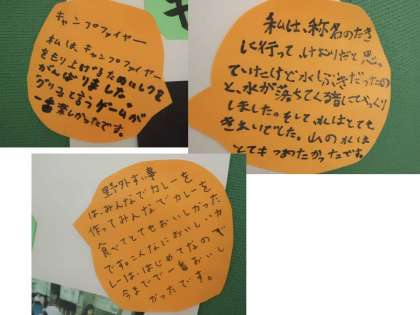 キャンプファイヤー
私は、キャンプファイヤー
をもり上げるためにレクを
がんばりました。
グリコと言うゲームが
一番楽しかったです。
私は、称名のたき
に行って、けむりだと思っ
ていたけど水しぶきだったの
と、水が落ちてく音にびっくり
しました。そして、水はとても
きれいでした。山の水は
とてもつめたかったです。
野外すい事
は、みんなでカレーを
作ってみんなでカレーを
食べてとてもおいしかった
です。こんなにおいしいカ
レーは、はじめてなので
今までで一番おいし
かったです。